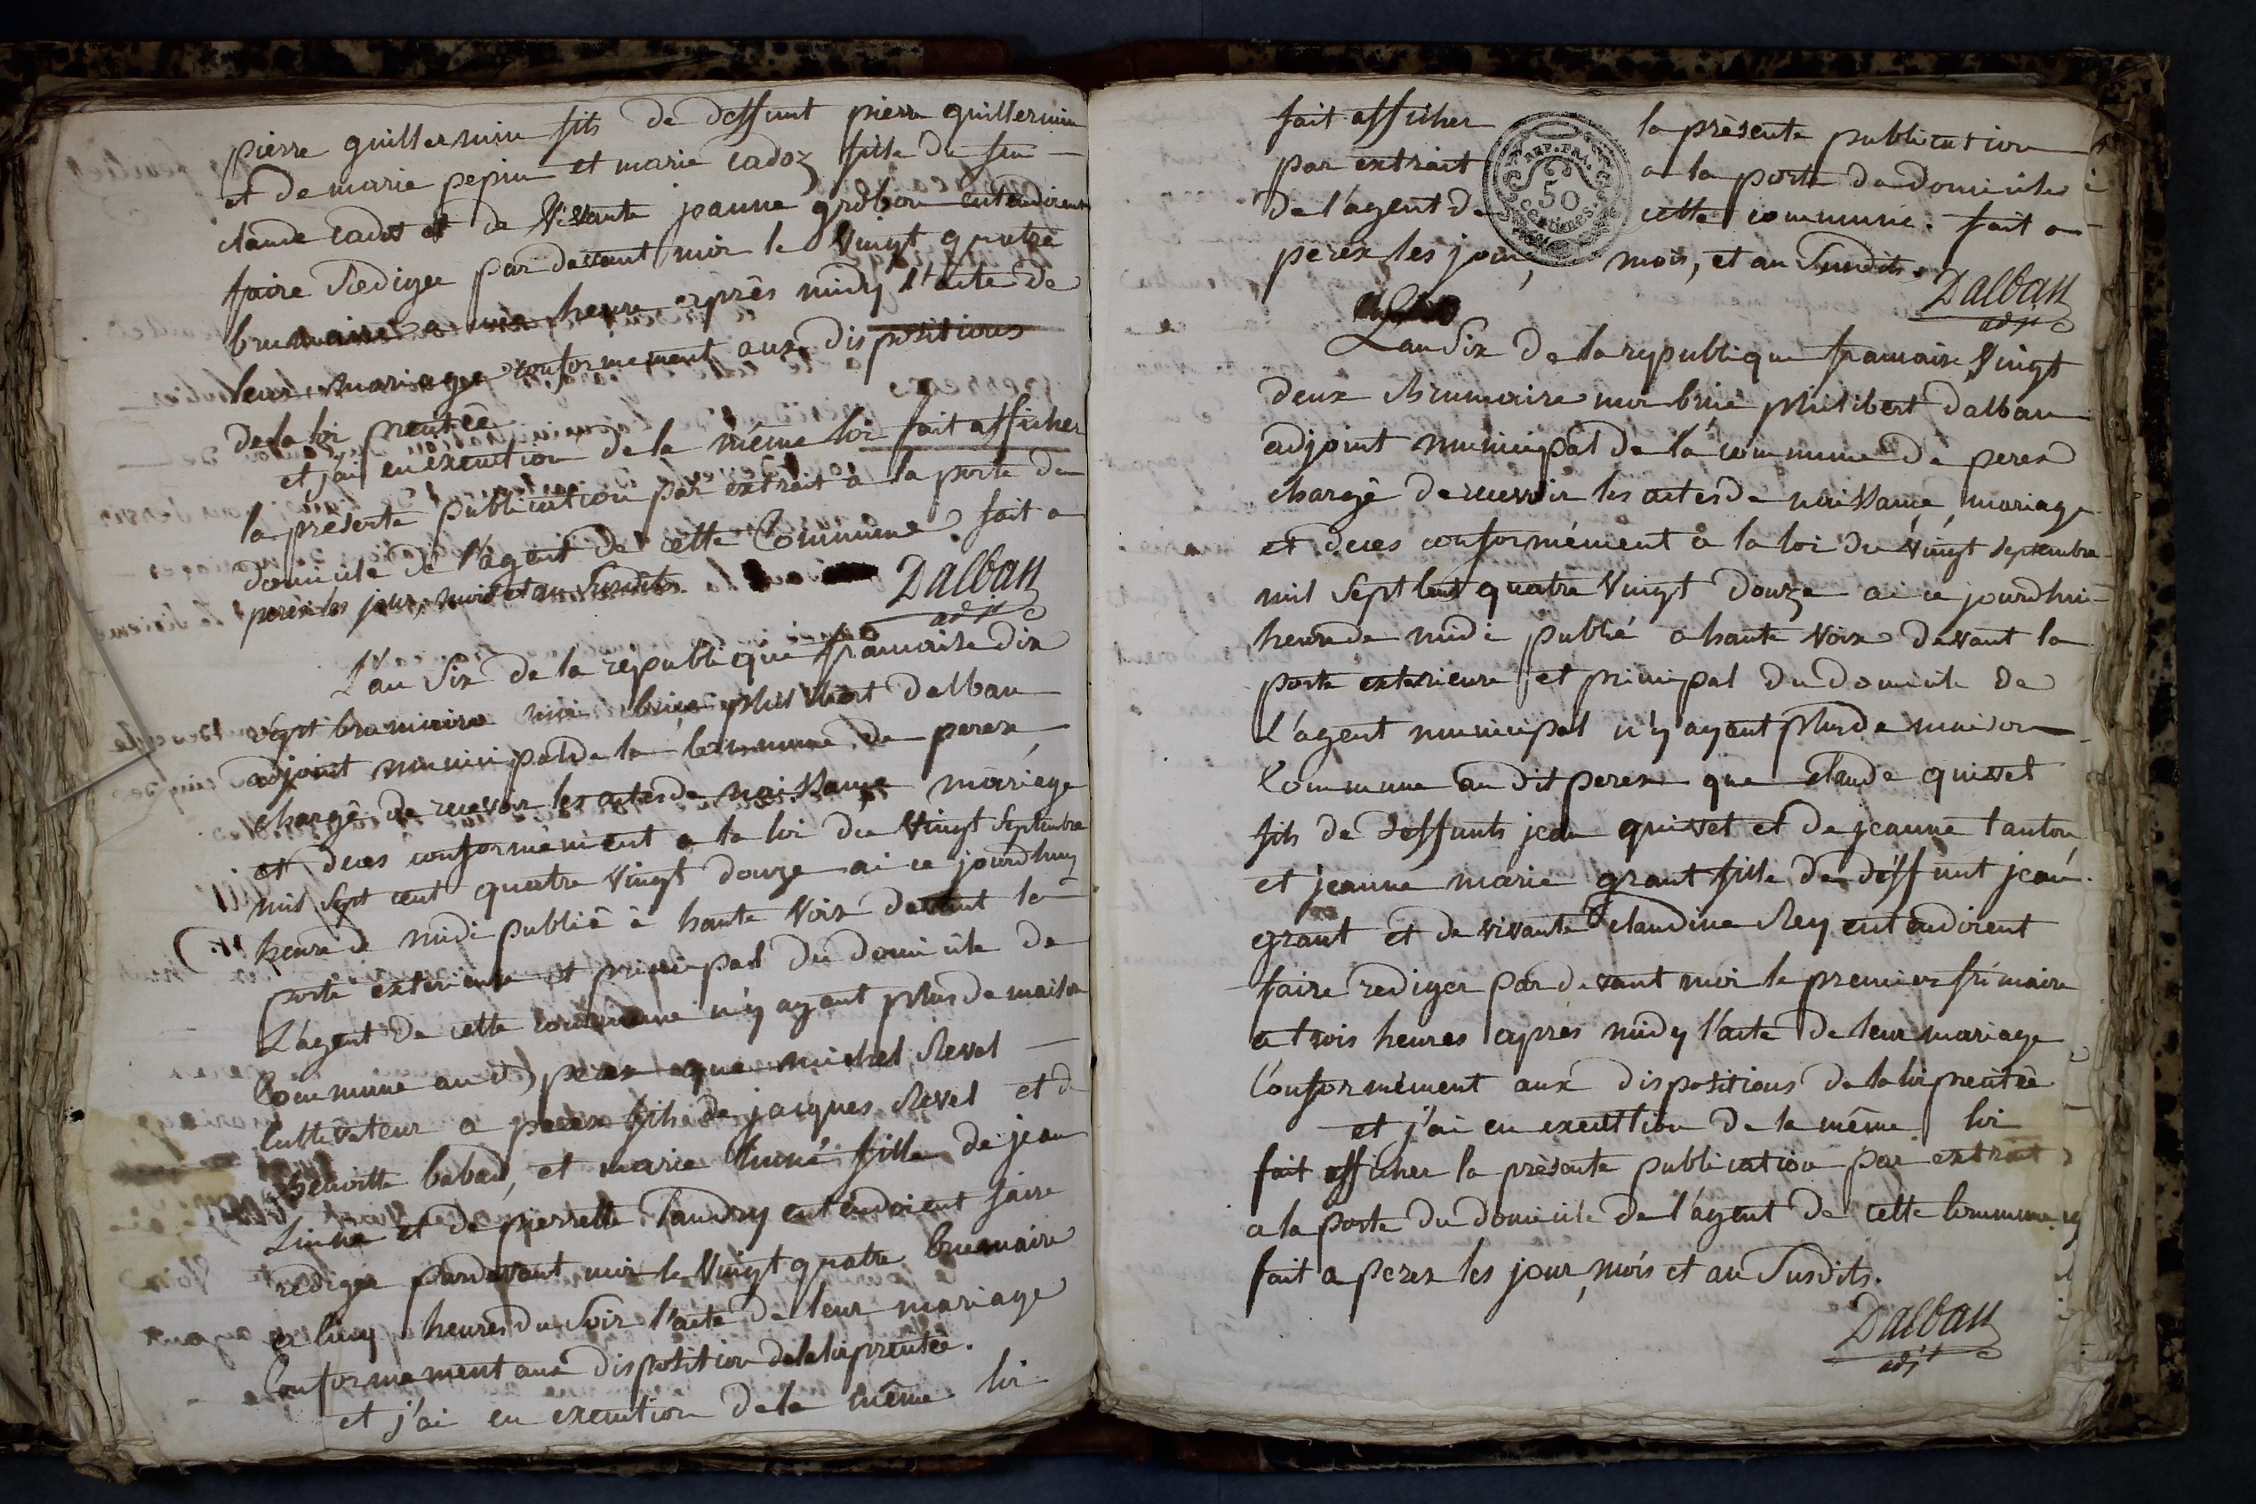 pierre guillermin fils de deffunt pierre guillermin
et de marie pepin et marie cadoz fille de feu
claude cados et de vivante jeanne grobon entendoient
faire rediger par devant moi le vingt quatre
brumaire a une heure après midy l'acte de
leur mariage conformement aux dispositions
de la loi precitée
et j'ai en execution de la même loi fait afficher
la presente publication par extrait a la porte du
domicile de l'agent de cette Commune fait a
perex les jour, mois et an susdits
Dalban
adjt
L'an Six de la republique francaise dix
sept brumaire moi brice philibert dalban
adjoint municipal de la Commune de perex
chargé de recevoir les actes de naissance mariage
et deces conformément a la loi du vingt septembre
mil sept cent quatre vingt douze ai ce jourdhuy
heure de midi publié à haute voix devant la
porte exterieure et principal du domicile de
L'agent de cette commune n'y ayant plus de maison
Commune au dt perex que michel Revel
Cultivateur a perex fils de jacques Revel et d
Benoitte babad, et marie fille de jean
et de pierrette Tandry entendoient faire
rediger pardevant moi le vingt quatre brumaire
es cinq heures du soir l'acte de leur mariage
Conformement aux disposition de la loi precitée.
et j'ai en execution de la même loi
fait afficher la présente publication
par extrait a la porte du domicile
de l'agent de cette commune. fait a
perex les jour, mois, et an susdits.
REP. FRA.
50
centimes.
Dalban
adjt
L'an Six de la republique francaise vingt
deux Brumaire moi brice philibert dalban
adjoint municipal de la commune de perex
chargé de recevoir les actes de naissance, mariage
et deces conformément à la loi du vingt septembre
mil sept cent quatre vingt douze ai ce jourdhui
heure de midi publié a haute voix devant la
porte exterieure et principal du domicile de
L'agent municipal n'y ayant plus de maison
Commune au dit perex que claude quivet
fils de deffunts jean quivet et de jeanne tanton,
et jeanne marie grant fille de deffunt jean
grant et de vivante claudine Rey entendoient
faire rediger par devant moi le premier frimaire
a trois heures après midy l'acte de leur mariage
Conformément aux dispositions de la loi precitée
et j'ai en execution de la même loi
fait afficher la présente publication par extrait
a la porte du domicile de l'agent de cette Commune
fait a perex les jour, mois et an susdits.
Dalban
adjt